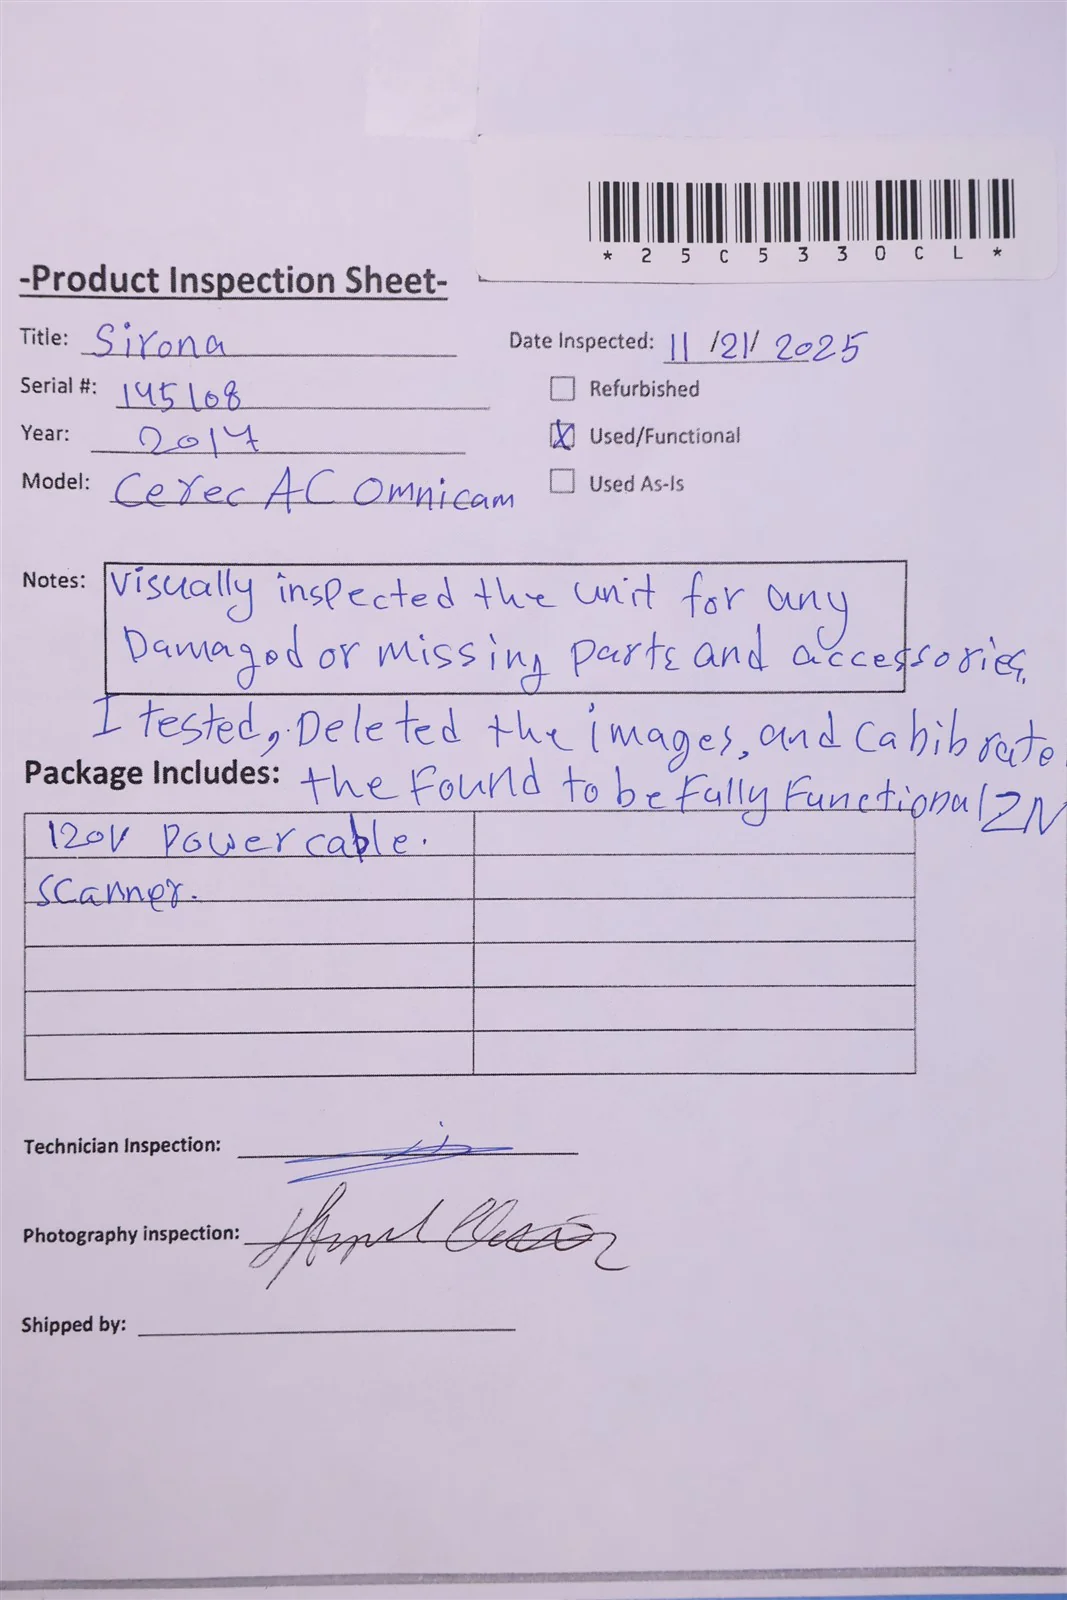 * 2 5 C 5 3 3 0 C L *
-Product Inspection Sheet-
Title: Sirona
Date Inspected: 11/21/2025
Serial #: 145108
Refurbished
Year: 2017
X Used/Functional
Model: Cerec AC Omnicam
Used As-Is
Notes: Visually inspected the unit for any
Damaged or missing parts and accessories.
I tested, Deleted the images, and Cabibrate
Package Includes: the Found to be Fully Functional ZN
120V Power cable.
Scanner.
Technician Inspection:
Photography inspection:
Shipped by: